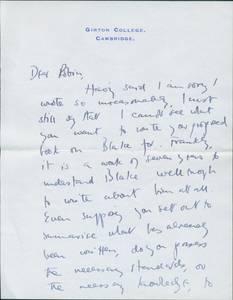 GIRTON COLLEGE,
CAMBRIDGE.
Dear Robin,
Having said I am sorry I
wrote so unreasonably, I must
still say that I cannot see what
you want to write your proposed
book on Blake for. Frankly,
it is a work of seven years to
understand Blake well enough
to write about him at all.
Even suppose you set out to
summarise what has already
been written, do you possess
the necessary standards, or
the necessary knowledge, to